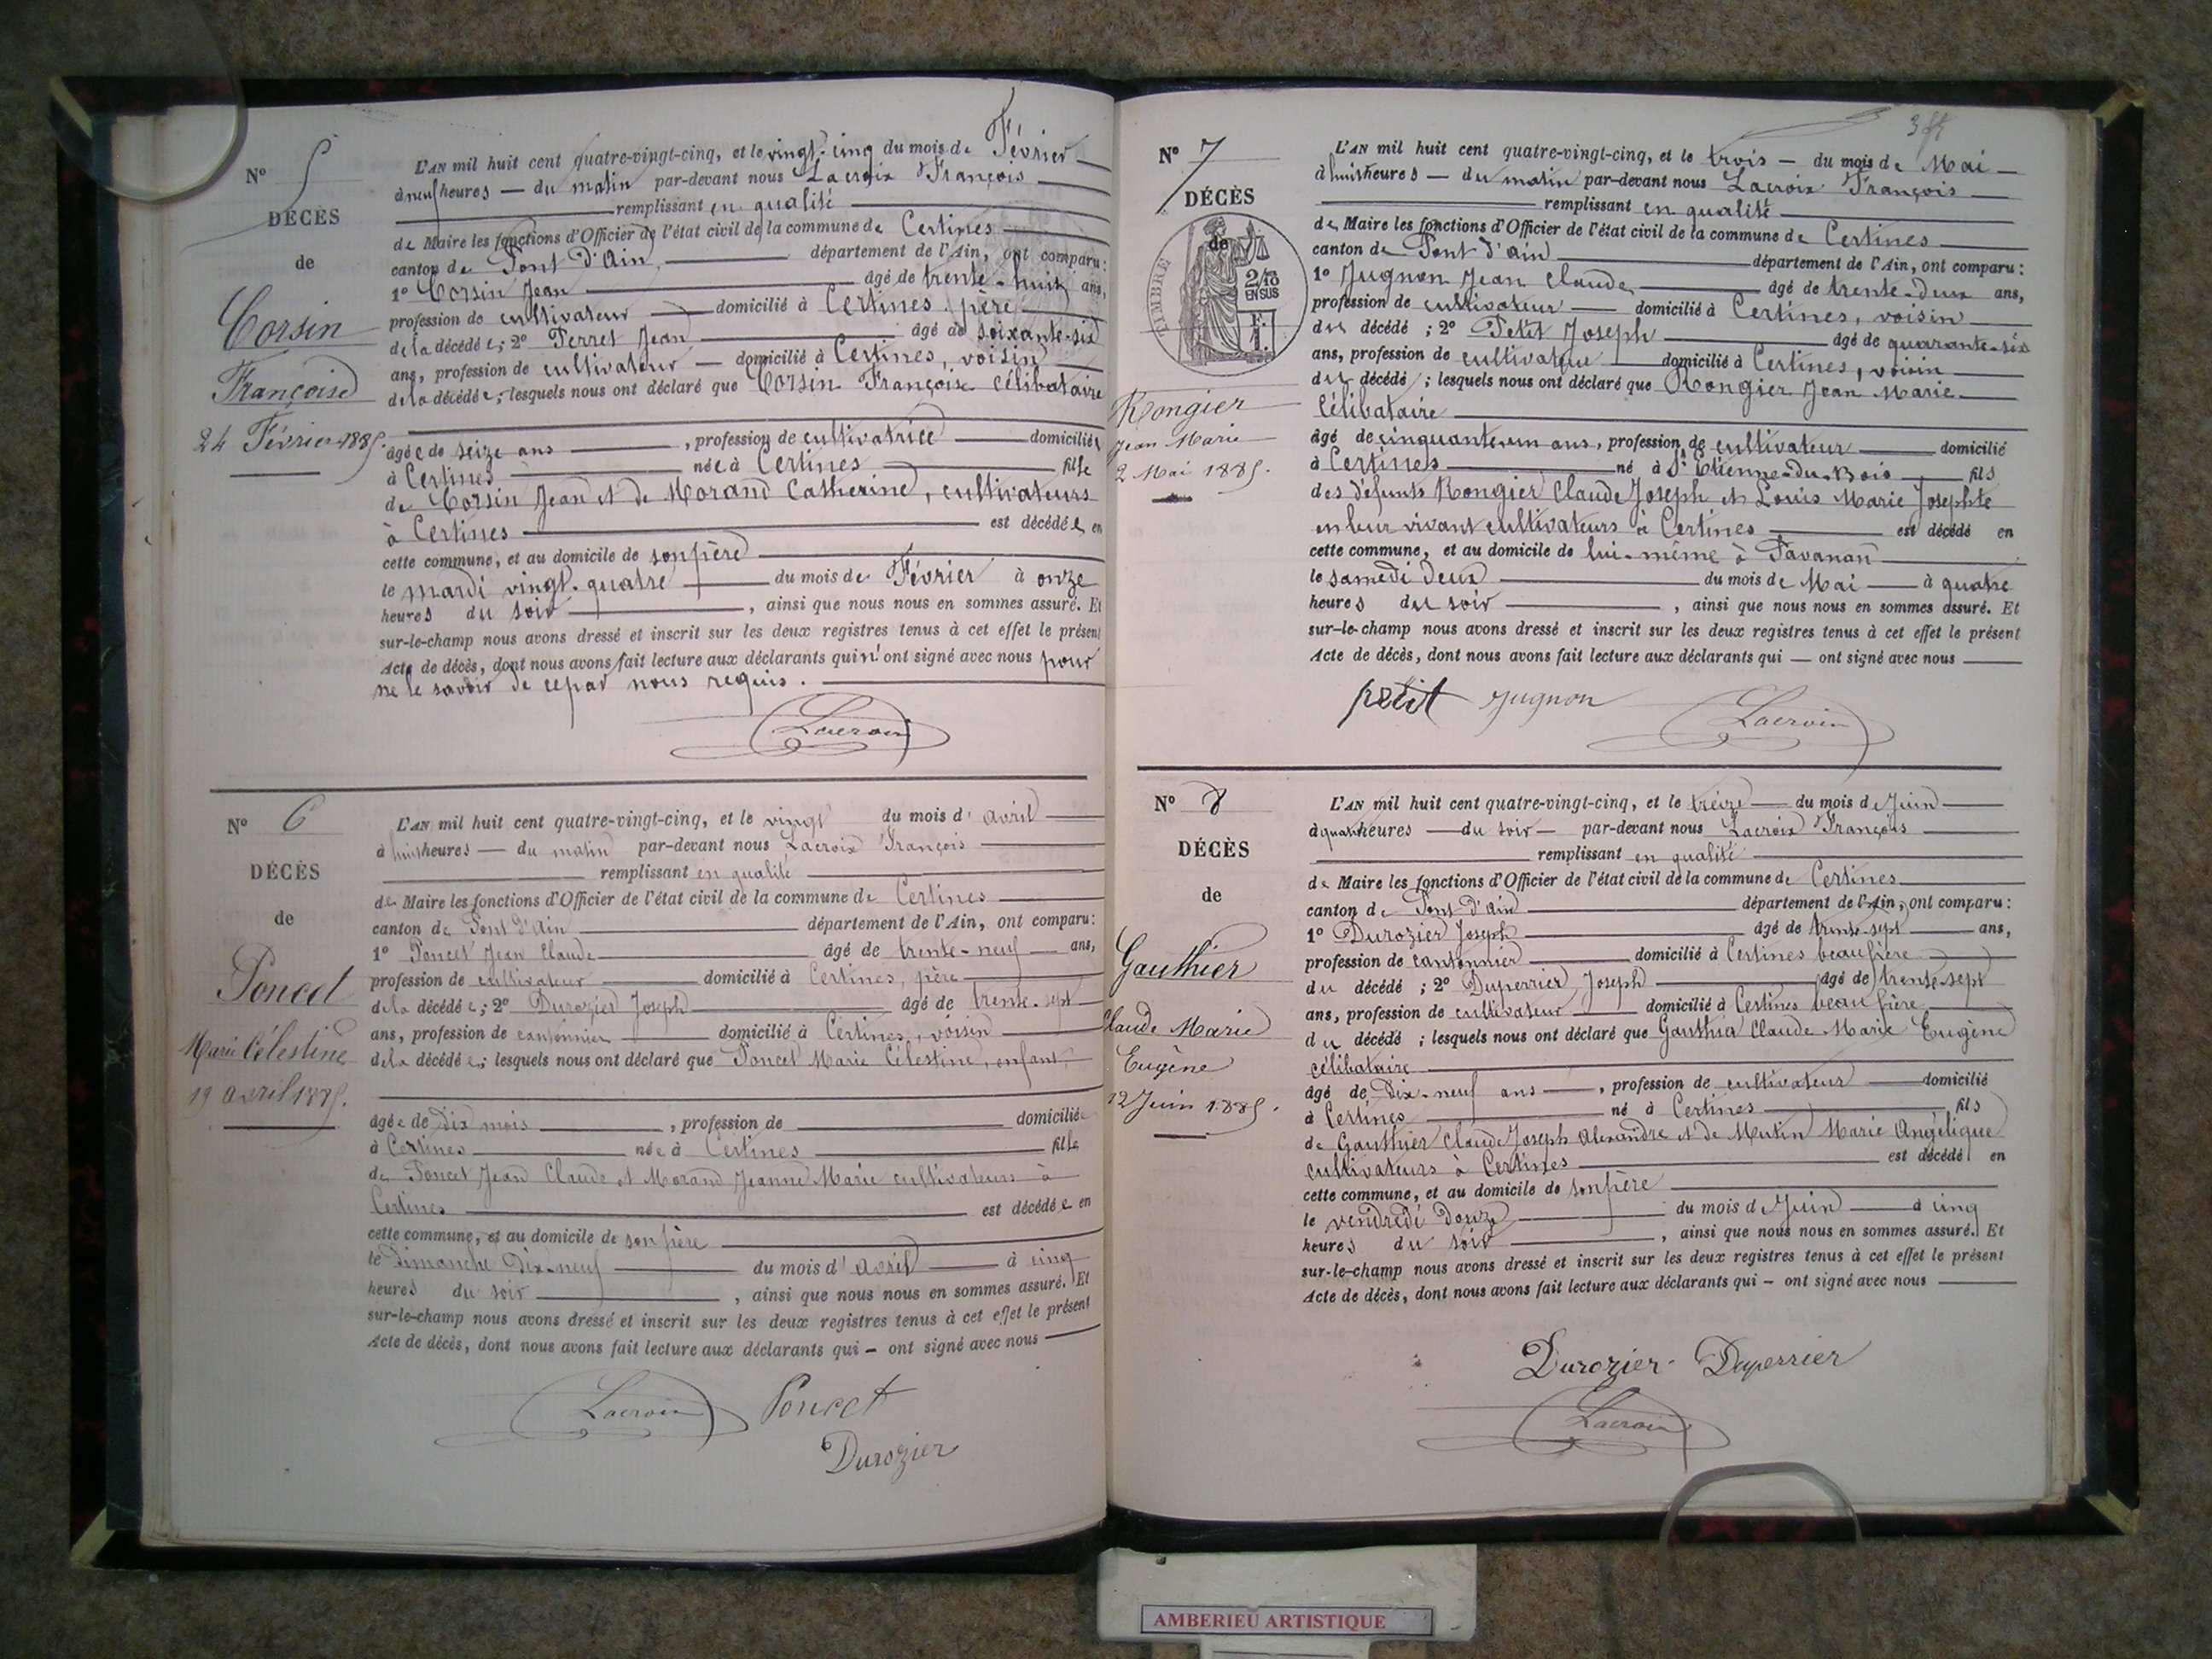 N° 5
DÉCÈS
de
Corsin
Françoise
24 Février 1885.
L'AN mil huit cent quatre-vingt-cinq, et le vingt-cinq du mois de Février
à neuf heures — du matin par-devant nous Lacroix François
remplissant en qualité
de Maire les fonctions d'Officier de l'état civil de la commune de Certines
canton de Pont d'Ain département de l'Ain, ont comparu:
1° Corsin Jean âgé de trente-huit ans,
profession de cultivateur domicilié à Certines, père
de la décédée; 2° Perret Jean âgé de soixante-six
ans, profession de cultivateur — domicilié à Certines, voisin
de la décédée; lesquels nous ont déclaré que Corsin Françoise célibataire
âgée de seize ans, profession de cultivatrice domiciliée
à Certines née à Certines fille
de Corsin Jean et de Morand Catherine, cultivateurs
à Certines est décédée en
cette commune, et au domicile de son père
le mardi vingt-quatre du mois de Février à onze
heures du soir, ainsi que nous nous en sommes assuré. Et
sur-le-champ nous avons dressé et inscrit sur les deux registres tenus à cet effet le présent
Acte de décès, dont nous avons fait lecture aux déclarants qui n'ont signé avec nous pour
ne le savoir de ce par nous requis.
Lacroix
N° 6
DÉCÈS
de
Poncet
Marie Célestine
19 avril 1885.
L'AN mil huit cent quatre-vingt-cinq, et le vingt du mois d'avril
à huit heures — du matin par-devant nous Lacroix François
remplissant en qualité
de Maire les fonctions d'Officier de l'état civil de la commune de Certines
canton de Pont d'Ain département de l'Ain, ont comparu:
1° Poncet Jean Claude âgé de trente-neuf — ans,
profession de cultivateur domicilié à Certines, père
de la décédée; 2° Durozier Joseph âgé de trente-sept
ans, profession de cantonnier domicilié à Certines, voisin
de la décédée; lesquels nous ont déclaré que Poncet Marie Célestine, enfant
âgée de dix mois, profession de domiciliée
à Certines née à Certines fille
de Poncet Jean Claude et Morand Jeanne Marie cultivateurs à
Certines est décédée en
cette commune, et au domicile de son père
le Dimanche Dix-neuf du mois d'avril à cinq
heures du soir, ainsi que nous nous en sommes assuré. Et
sur-le-champ nous avons dressé et inscrit sur les deux registres tenus à cet effet le présent
Acte de décès, dont nous avons fait lecture aux déclarants qui — ont signé avec nous
Lacroix Poncet
Durozier
N° 7
DÉCÈS
de
TIMBRE
2/10
EN SUS
Rongier
Jean Marie
2 Mai 1885.
L'AN mil huit cent quatre-vingt-cinq, et le trois — du mois de Mai
à huit heures — du matin par-devant nous Lacroix François
remplissant en qualité
de Maire les fonctions d'Officier de l'état civil de la commune de Certines
canton de Pont d'ain département de l'Ain, ont comparu:
1° Jugnon Jean Claude âgé de trente-deux ans,
profession de cultivateur domicilié à Certines, voisin
du décédé; 2° Petit Joseph âgé de quarante-six
ans, profession de cultivateur domicilié à Certines, voisin
du décédé; lesquels nous ont déclaré que Rongier Jean Marie
Célibataire
âgé de cinquante-un ans, profession de cultivateur domicilié
à Certines né à St Etienne-du-Bois fils
des défunts Rongier Claude Joseph et Louis Marie Josephte
en leur vivant cultivateurs à Certines est décédé en
cette commune, et au domicile de lui-même à
le samedi deux du mois de Mai à quatre
heures du soir, ainsi que nous nous en sommes assuré. Et
sur-le-champ nous avons dressé et inscrit sur les deux registres tenus à cet effet le présent
Acte de décès, dont nous avons fait lecture aux déclarants qui — ont signé avec nous
petit Jugnon Lacroix
N° 8
DÉCÈS
de
Gauthier
Claude Marie
Eugène
12 Juin 1885.
L'AN mil huit cent quatre-vingt-cinq, et le treize — du mois de Juin
à quatre heures — du soir — par-devant nous Lacroix François
remplissant en qualité
de Maire les fonctions d'Officier de l'état civil de la commune de Certines
canton de Pont d'Ain département de l'Ain, ont comparu:
1° Durozier Joseph âgé de trente-sept ans,
profession de cantonnier domicilié à Certines beau frère
du décédé; 2° Duperrier Joseph âgé de trente-sept
ans, profession de cultivateur domicilié à Certines beau frère
du décédé; lesquels nous ont déclaré que Gauthier Claude Marie Eugène
célibataire
âgé de Dix-neuf ans, profession de cultivateur domicilié
à Certines né à Certines fils
de Gauthier Claude Joseph Alexandre et de Mutin Marie Angélique
cultivateurs à Certines est décédé en
cette commune, et au domicile de son père
le vendredi Douze du mois de Juin à cinq
heures du soir, ainsi que nous nous en sommes assuré. Et
sur-le-champ nous avons dressé et inscrit sur les deux registres tenus à cet effet le présent
Acte de décès, dont nous avons fait lecture aux déclarants qui — ont signé avec nous
Durozier Duperrier
Lacroix
AMBERIEU ARTISTIQUE